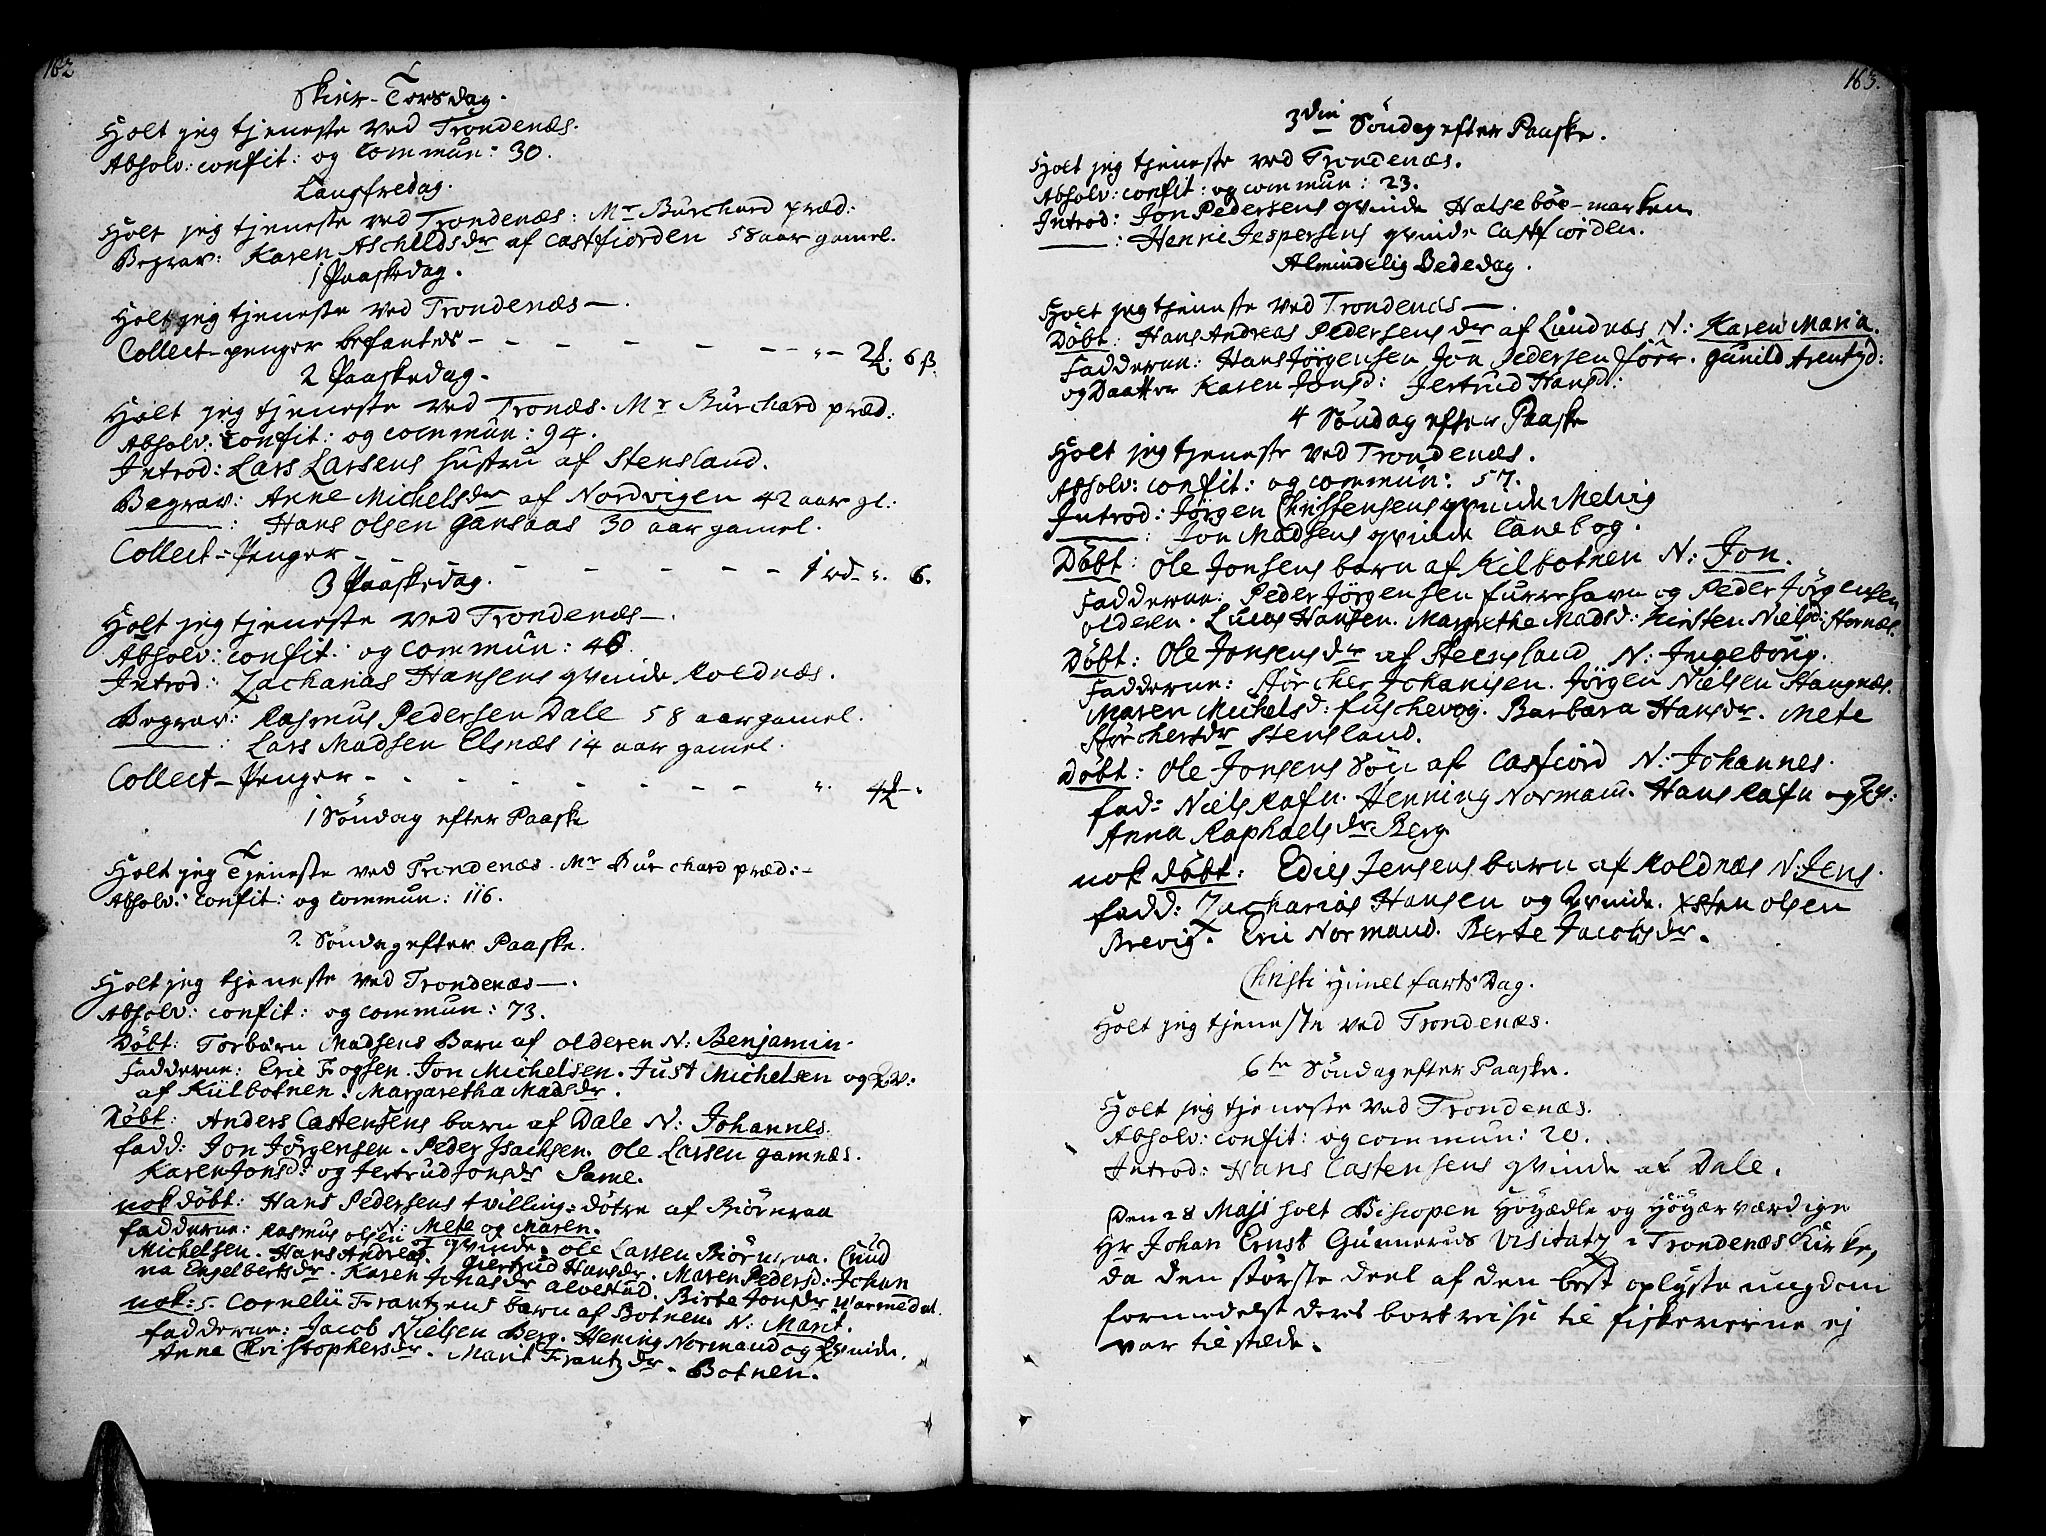 162
Skier-Torsdag.
Holt jeg tjeneste ved Trondenæs.
Absolv: confit: og commun: 30.
Langfredag.
Holt jeg tjeneste ved Trondenæs: Mr Burchard præd:
Begrav: Karen Aschildsdr af Castfiorden 58 aar gamel.
1 Paaskedag.
Holt jeg tjeneste ved Trondenæs—.
Collect-penger befantes - - - - - - - " - 2 6 ß.
2 Paaskedag.
Holt jeg tjeneste ved Tronæs. Mr Burchard præd:
Absolv: confit: og commun: 94.
Introd: Lars Larsens hustru af Stensland.
Begrav: Anne Michelsdr af Nordvigen 42 aar gl:
——: Hans Olsen Gansaas 30 aar gamel.
Collect-Penger - - - - - - - 1 rd - ". 6.
3 Paaskedag.
Holt jeg tjeneste ved Trondenæs—.
Absolv: confit: og commun: 46.
Introd: Zacharias Hansens qvinde Koldnæs.
Begrav: Rasmus Pedersen Dale 58 aar gamel.
——: Lars Madsen Elsnæs 14 aar gamel.
Collect-Penger - - - - - - - ". 4 - "
1 Söndag efter Paaske
Holt jeg Tjeneste ved Trondenæs. Mr Burchard præd:-
Absolv: confit: og commun: 116.
2 Söndag efter Paaske.
Holt jeg tjeneste ved Trondenæs—.
Absolv: confit: og commun: 73.
Döbt: Torbörn Madsens Barn af Olderen N: Benjamin.
Fadderne: Eric Fogsen. Jon Michelsen. Just Michelsen og Qv:
af Kiilbotnen. Margaretha Madsdr.
Döbt: Anders Castensens barn af Dale N: Johannes.
fadd: Jon Jörgensen. Peder Isachsen. Ole Larsen Gamnæs.
Karen Jonsd: og Jertrud Jonsdr Same.
nok döbt: Hans Pedersens tvilling-döttre af Biörnraa
N: Mete og Maren.
Fadderne: Rasmus Olsen og qvinde. Ole Larsen Biörnraa. Cnud
Michelsen. Hans Andreas. Giertrud Hansdr. Maren Pedersd: Johan
na Engelbertsdr. Karen Jonasdr Alvestad. Birte Jonsdr Warmedal.
nok: s. Cornelii Frantzens barn af Botnen. N: Marit.
fadderne: Jacob Nielsen Berg. Hening Normand og Qvinde.
Anne Christophersdr. Marit Frantzdr. Botnen.
163.
3die Söndag efter Paaske.
Holt jeg tjeneste ved Trondenæs.
Absolv: confit: og commun: 23.
Introd: Jon Pedersens qvinde Halseböe-marken.
——: Henric Jespersens qvinde Castfiorden.
Almindelig Bededag.
Holt jeg tjeneste ved Trondenæs—.
Döbt: Hans Andreas Pedersens dr af Lundnæs N: Karen Maria.
Fadderne: Hans Jörgensen Jon Pedersen. Gunild Arentzd:
og Daatter Karen Jonsd: Jertrud Hansd:
4 Söndag efter Paaske
Holt jeg tjeneste ved Trondenæs.
Absolv: confit: og commun: 57.
Introd: Jörgen Christensens qvinde Melvig
——: Jon Madsens qvinde Canebog.
Döbt: Ole Jonsens barn af Kilbotnen N: Jon.
Fadderne: Peder Jörgensen furrehavn og Peder Jörgensen
Olderen. Lucas Hansen. Margrethe Madsd: Kirsten Nielsd: Hernæs.
Döbt: Ole Jonsens dr af Stensland N: Ingeborg.
Fadderne: Störcher Johanisen. Jörgen Nielsen Haugnæs.
Maren Michelsd: fuschevog. Barbara Hansdr. Mete
Störchersdr Stensland.
Döbt: Ole Jonsens Sön af Castfiord N: Johannes.
fad: Niels Rafn. Henning Normand. Hans Rafn og Qv:
Anna Raphaelsdr Berg.
nok döbt: Edies Jensens barn af Koldnæs N: Jens.
fadd: Zacharias Hansen og Qvinde. Xsten Olsen
Brevig. Eric Normand. Berte Jacobsdr.
Christi Himelfarts Dag.
Holt jeg tjeneste ved Trondenæs.
6te Söndag efter Paaske.
Holt jeg tjeneste ved Trondenæs.
Absolv: confit: og commun: 20.
Introd: Hans Castensens qvinde af Dale.
Den 28 Maji holt Biscopen Höyædle og Höyærværdige
Hr Johan Ernst Gunnerus Visitatz i Trondenæs Kirke,
da den störste deel af den best oplyste ungdom
formedelst deres bortreise til fiskeverne ej
var tilstæde.